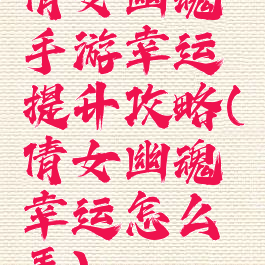 倩女幽魂
手游幸运
提升攻略(
倩女幽魂
幸运怎么